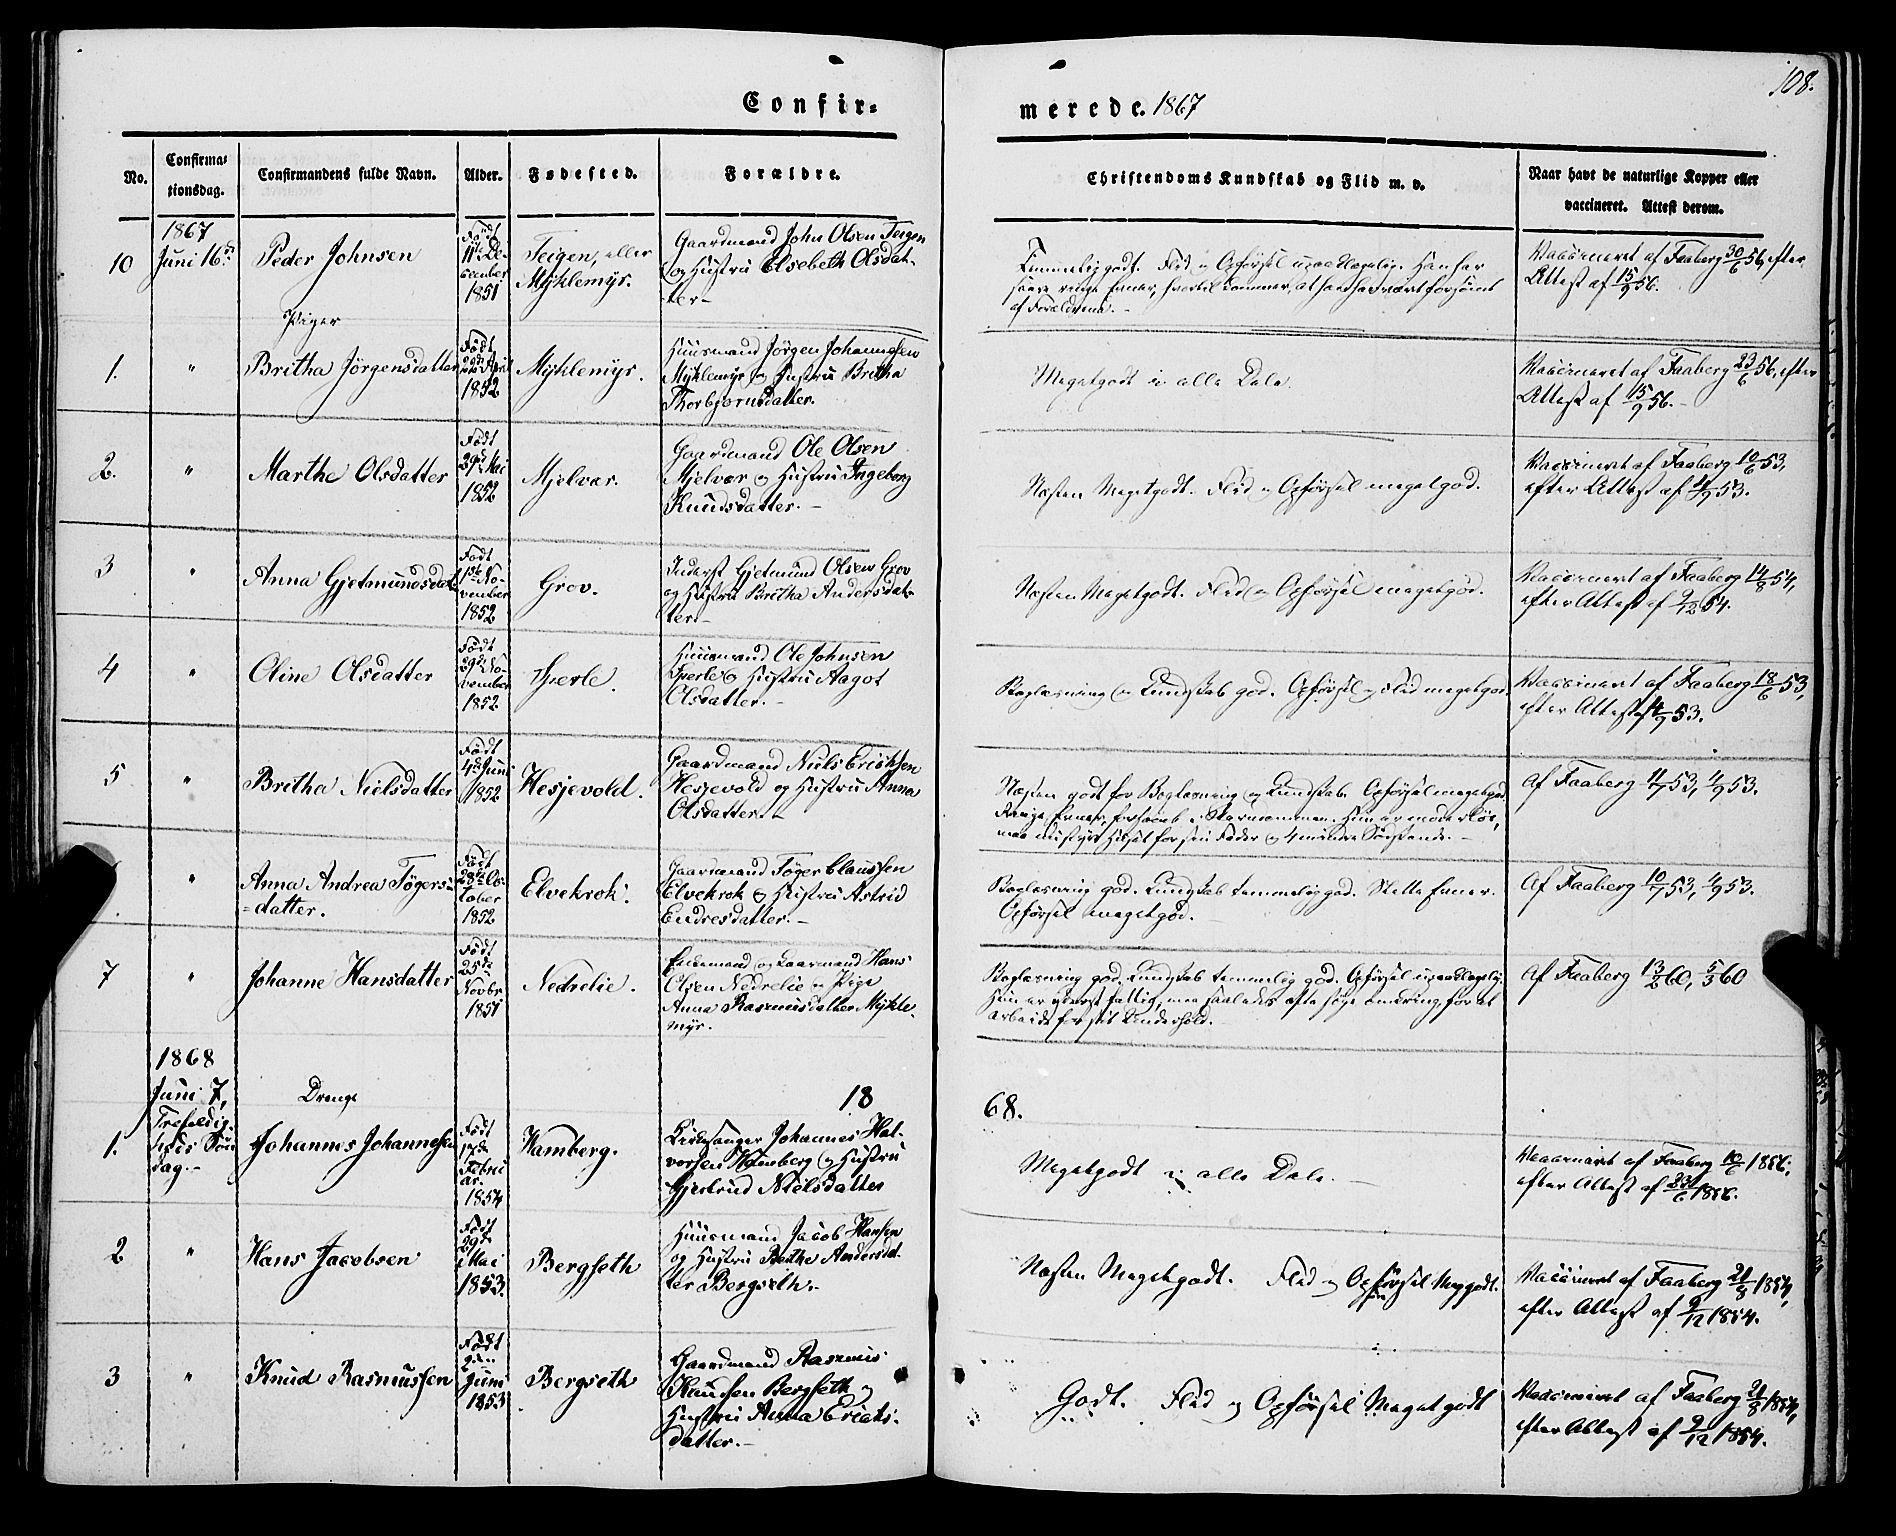 108.
Confir-
merede. 1867
No.
Confirma-
tionsdag.
Confirmandens fulde Navn.
Alder.
Fødested.
Forældre.
Christendoms Kundskab og Flid m. v.
Naar havt de naturlige Kopper eller
vaccineret. Attest derom.
1867
10
Juni 16de
Peder Johnsen
Født
11te De-
cember
1851
Teigen, eller
Myklemyr.
Gaardmand John Olsen Teigen
og Hustru Elsebeth Olsdat-
ter-
Temmelig godt. Flid og Opførsel upaaklagelig. Han har
ringe Evner, hvortil kommer, at han har været forsømt
af Forældrene. -
Vaccineret af Faaberg 30/6 56, efter
Attest af 15/9 56.
Piger
1.
"
Britha Jørgensdatter
Født
22de April
1852
Myklemyr.
Huusmand Jørgen Johannesen
Myklemyr og Hustru Britha
Thorbjørnsdatter.
Megetgodt i alle Dele.
Vaccineret af Faaberg 23/6 56, efter
Attest af 15/9 56. -
2.
"
Marthe Olsdatter
Født
29de Mai
1852
Mjelvær.
Gaardmand Ole Olsen
Mjelvær og Hustru Ingeborg
Knudsdatter. -
Næsten Megetgodt. Flid og Opførsel megetgod.
Vaccineret af Faaberg 10/6 53,
efter Attest af 4/9 53.
3
"
Anna Gjetmundsdat.
Født
1ste No-
vember
1852
Grov.
Inderst Gjetmund Olsen Grov
og Hustru Britha Andersdat-
ter. -
Næsten Megetgodt. Flid og Opførsel megetgod.
Vaccineret af Faaberg 14/8 54,
efter Attest af 9/12 54.
4
"
Oline Olsdatter
Født
29de No-
vember
1852.
Sperle.
Huusmand Ole Johnsen
Sperle og Hustru Aagot
Olsdatter. -
Boglæsning og Kundskab god. Opførsel og Flid megetgod.
Vaccineret af Faaberg 18/6 53,
efter Attest af 4/9 53.
5
"
Britha Nielsdatter
Født
4de Juni
1852
Hesjevold.
Gaardmand Niels Ericksen
Hesjevold og Hustru Anna
Olsdatter. -
Næsten godt for Boglæsning og Kundskab. Opførsel megetgod.
Ringe Evner, Hun er moderløs,
maa bestyre Huset for sin Fader og 4 mindre Sødskende. -
Af Faaberg 11/7 53, 4/9 53.
"
Anna Andrea Tøgers-
=datter.
Født
28de Oc-
tober
1852
Elvekrok.
Gaardmand Tøger Claussen
Elvekrok og Hustru Astrid
Endresdatter. -
Boglæsning god. Kundskab temmelig god. Smaa Evner.
Opførsel megetgod. -
Af Faaberg 10/7 53, 4/9 53.
7
"
Johanne Hansdatter
Født
25de
Novbr
1851
Nedrelie.
Enkemand og Gaardmand Hans
Olsen Nedrelie og Pige
Anna Rasmusdatter Mykle-
myr.
Boglæsning god, Kundskab temmelig god. Opførsel upaaklagelig.
Hun er yderst fattig, maa saaledes ofte søge omkring, for at
arbeide for sit Underhold. -
Af Faaberg 13/2 60, 5/5 60
1868
Juni 7,
Trefoldig-
heds Søn-
dag. -
Drenge
18
68.
1.
Johannes Johannesen
Født
17de
Februar.
1854
Kamberg.
Kirkesanger Johannes Hal-
vorsen Kamberg og Hustru
Gjertrud Nielsdatter
Megetgodt i alle Dele. -
Vaccineret af Faaberg 10/6 1856,
efter Attest af 23/6 1856.
2
"
Hans Jacobsen
Født
29de
Mai
1853.
Bergseth
Huusmand Jacob Hansen
og Hustru Brithe Andersdat-
ter Bergseth. -
Næsten Megetgodt. Flid og Opførsel Megetgodt.
Vaccineret af Faaberg 21/8 1854,
efter Attest af 9/12 1854.
3
"
Knud Rasmussen
Født
9den
Juni
1853
Bergseth
Gaardmand Rasmus
Knudsen Bergseth og
Hustru Anna Ericks-
datter. -
Godt. Flid og Opførsel Megetgodt
Vaccineret af Faaberg 21/8 1854,
efter Attest af 9/12 1854.